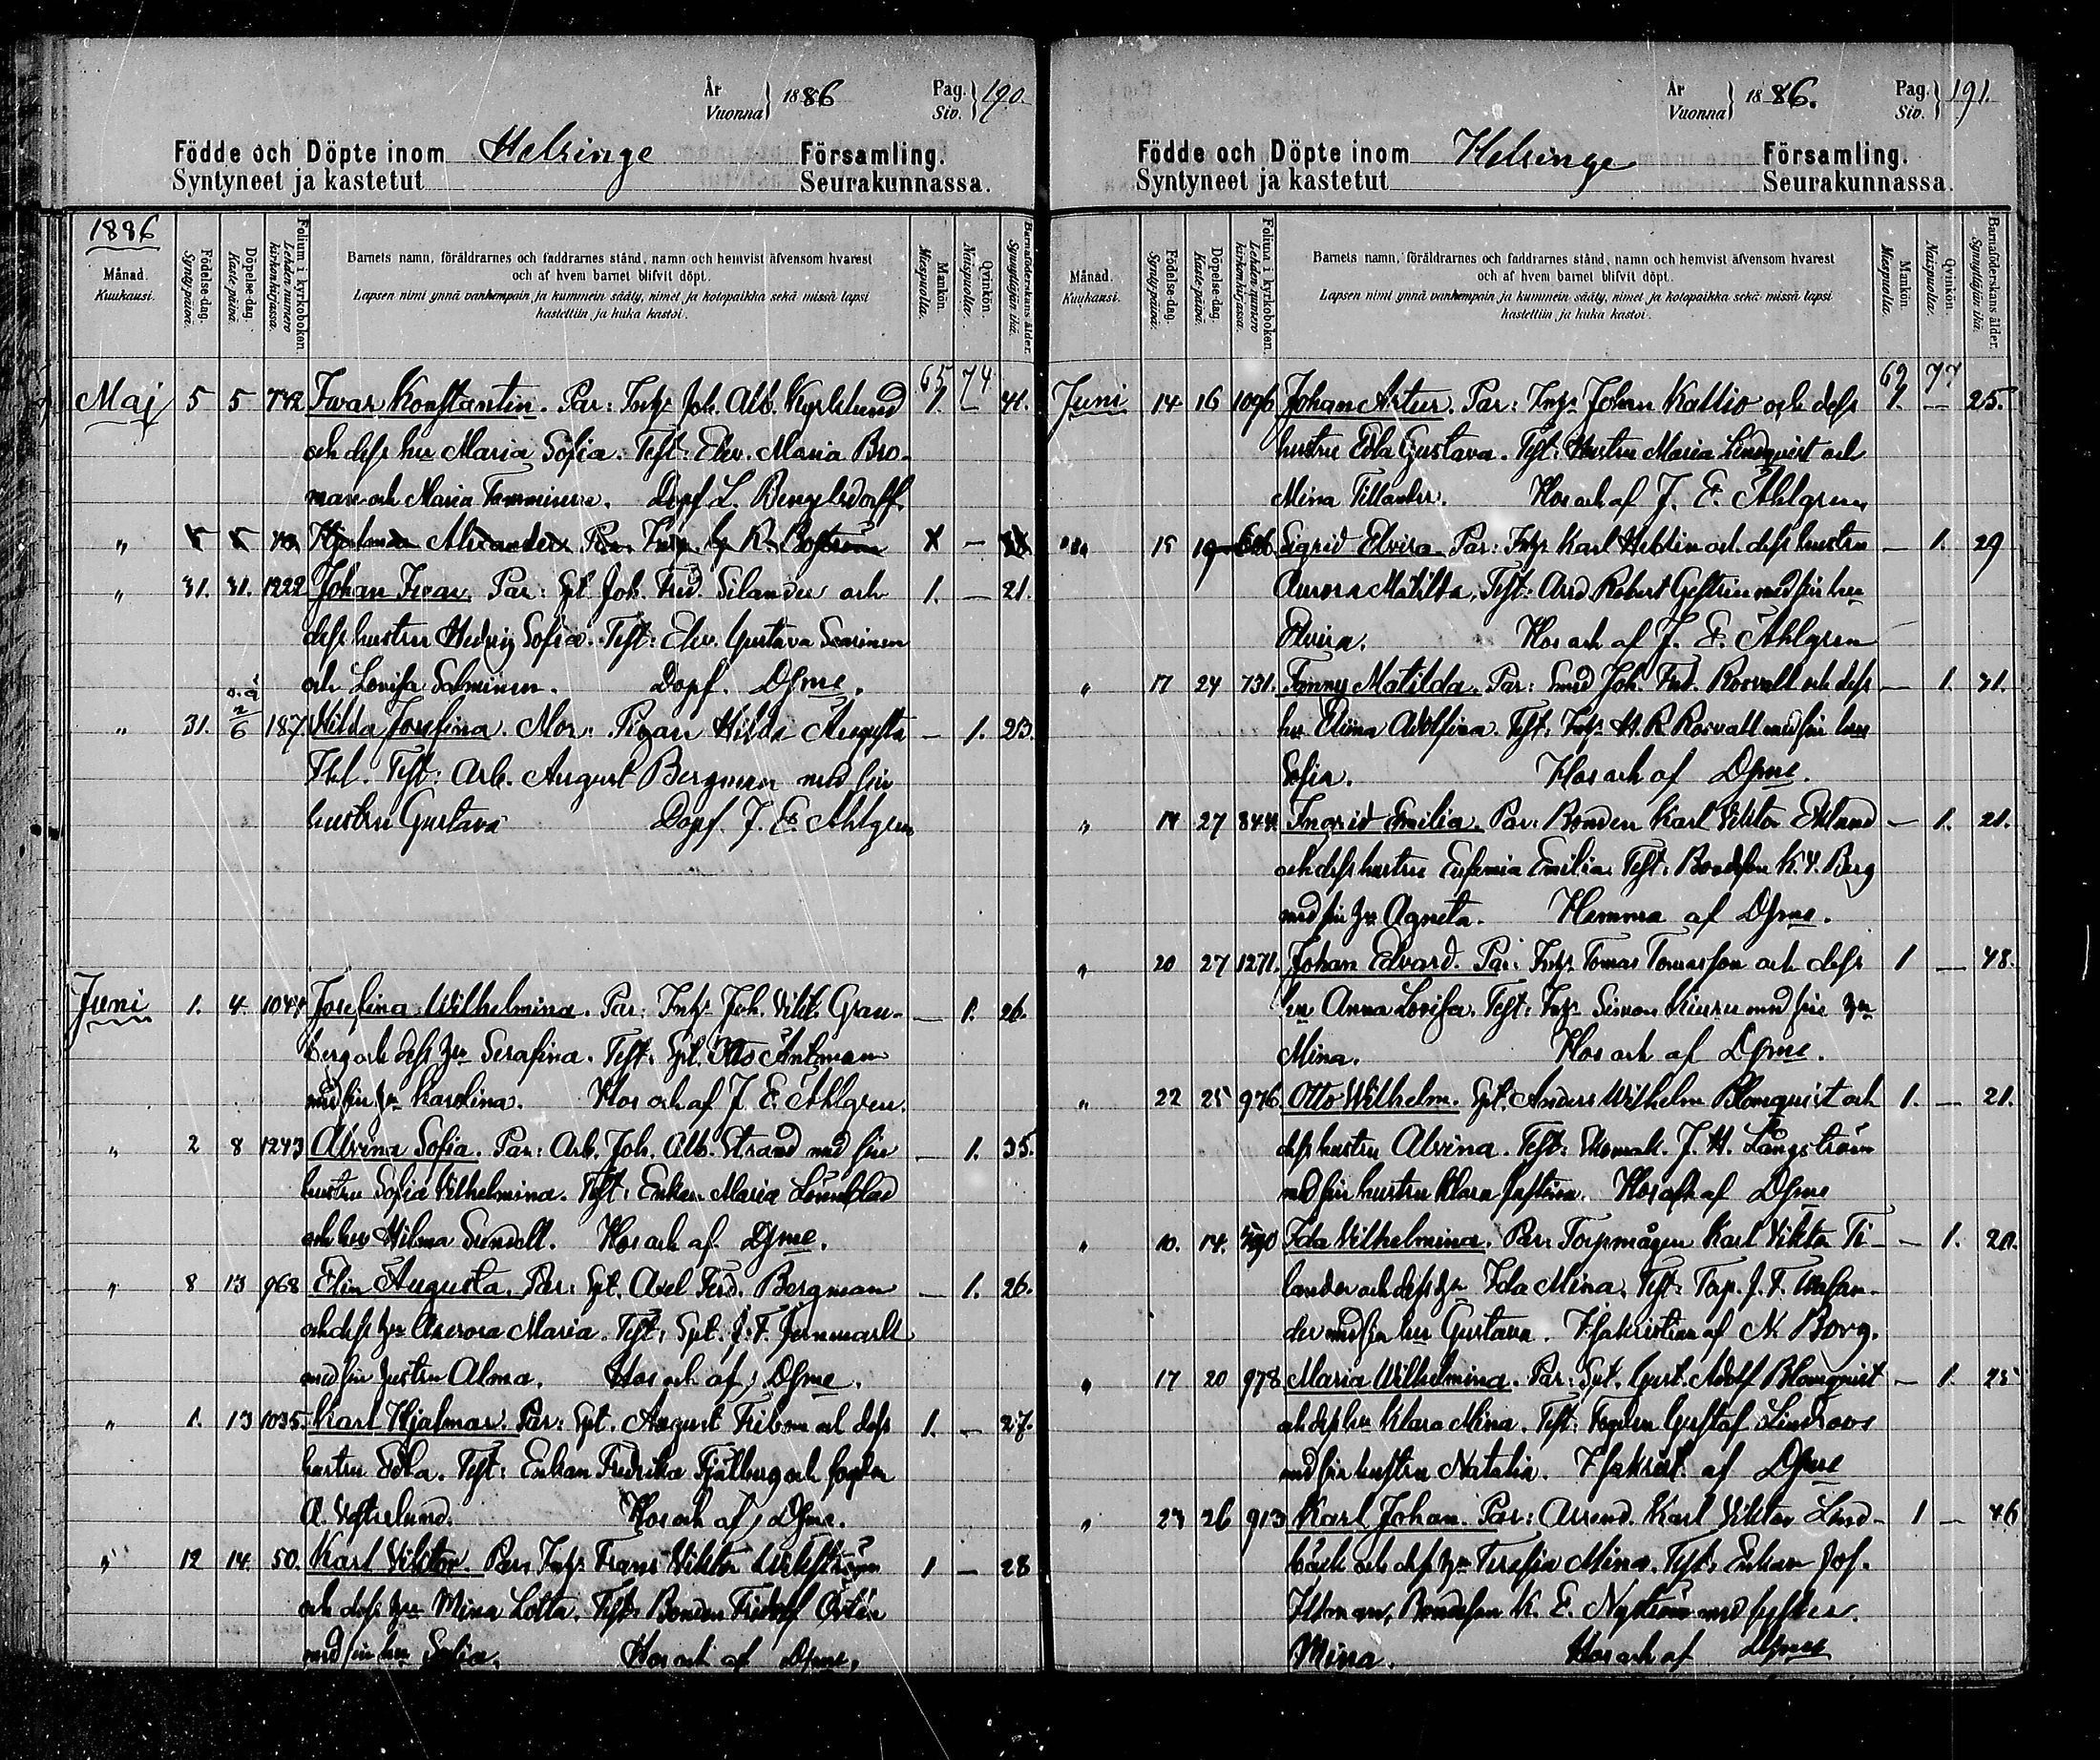 År
Vuonna } 1886
Pag.
Siv. } 190.
Födde och Döpte inom Helsinge Församling.
Syntyneet ja kastetut Seurakunnassa.
1886
Månad.
Kuukausi.
Födelse-dag.
Syntypäivä.
Döpelse-dag.
Kaste-päivä.
Folium i kyrkoboken.
Lehden numero kirkonkirjassa.
Barnets namn, föräldrarnes och faddrarnes stånd, namn och hemvist äfvensom hvarest
och af hvem barnet blifvit döpt.
Lapsen nimi ynnä vanhempain ja kummein sääty, nimet ja kotopaikka sekä missä lapsi
kastettiin ja kuka kastoi.
Mankön.
Miespuolia.
Qvinkön.
Naispuolia.
Barnaföderskans ålder.
Synnyttäjän ikä.
65 74
Maj 5 5 Ivar Konstantin. Par: Inhs Joh. Alb. Kyrklund 1. – 41.
och dess hu Maria Sofia. Test: Elev. Maria Bro-
man och Maria Tamminen. Döpf. L. Bengelsdorff.
" 5 5 Alexander Par. R. Boström – 
" 31. 31. 1222 Johan Ivar. Par: Spt. Joh. Fred. Silander och 1. – 21.
dess hustru Hedvig Sofia. Test: Elev. Gustava Saarinen
och Lovisa Salminen. Döpf. Dsme.
" 31. 2/6 187. Hilda Josefina. Mor: Pigan Hilda Augusta – 1. 23.
Test: Arb. August Bergman med sin
hustru Gustava Döpf. J. E. Ahlgren
Juni 1. 4 1044 Josefina Wilhelmina. Par: Inhs Joh. Vikt. Gran- – 1. 26.
berg och dess hu Serafina. Test. Spt. Otto Antman
med sin hu Karolina. Hos och af J. E. Ahlgren.
" 2 8 1243 Alvina Sofia. Par: Arb. Joh. Alb. Strand med sin – 1. 35.
hustru Sofia Vilhelmina. Test: Enkan Maria Lönnblad
och hu Hilma Sundell. Hos och af Dsme.
" 8 13 968 Elin Augusta. Par: Spt. Axel Ferd. Bergman – 1. 26.
och dess hu Aurora Maria. Test: Spt. J. F. Jernmark
med sin hustru Alma. Hos och af Dsme.
" 1. 13 1035. Karl Hjalmar. Par: Spt. August Fribom och dess 1. – 27.
hustru Edla. Test: Enkan Fredrika Fjälberg och fogden
A. Hos och af Dsme.
" 12 14. 50. Karl Viktor. Par: Inhs Frans Viktor 1 – 28
och dess hu Mina Lotta. Test: Bonden Fridolf Östén
med sin hu Sofia. Hos och af Dsme.
År
Vuonna } 1886.
Pag.
Siv. } 191.
Födde och Döpte inom Helsinge Församling.
Syntyneet ja kastetut Seurakunnassa.
Månad.
Kuukausi.
Födelse-dag.
Syntypäivä.
Döpelse-dag.
Kaste-päivä.
Folium i kyrkoboken.
Lehden numero kirkonkirjassa.
Barnets namn, föräldrarnes och faddrarnes stånd, namn och hemvist äfvensom hvarest
och af hvem barnet blifvit döpt.
Lapsen nimi ynnä vanhempain ja kummein sääty, nimet ja kotopaikka sekä missä lapsi
kastettiin ja kuka kastoi.
Mankön.
Miespuolia.
Qvinkön.
Naispuolia.
Barnaföderskans ålder.
Synnyttäjän ikä.
69 77
Juni 14 16 1096 Johan Artur. Par: Inhs Johan Kallio och dess 1. – 25.
hustru Edla Gustava. Test: Hustru Maria Lindqvist och
Mina Tillander. Hos och af J. E. Ahlgren
" 15 19 Sigrid Elvira. Par: Inhs Karl Heldin och dess hustru – 1. 29
Aurora Matilda. Test: Arrd Robert Gestrin med sin hu
Elvira. Hos och af J. E. Ahlgren
" 17 24 731. Fanny Matilda. Par: Smed Joh. Fred. Rosvall och dess – 1. 31.
hu Elina Adolfina. Test: Inhs H. R. Rosvall med sin hu
Sofia. Hos och af Dsme.
" 14 27 844. Ingrid Emilia. Par: Bonden Karl Viktor Eklund – 1. 21.
och dess hustru Eufemia Emilia. Test: Bondeson K. V. Berg
med sin hu Agneta. Hemma af Dsme.
" 20 27 1271. Johan Edvard. Par: Inhs Tomas Tomasson och dess 1 – 48.
hu Anna Lovisa. Test: Inhs Simon Kiuru med sin hu
Mina. Hos och af Dsme.
" 22 25 976. Otto Wilhelm. Spt. Anders Wilhelm Blomqvist och 1. – 21.
dess hustru Alvina. Test: Skomak. J. H. Långström
med sin hustru Klara Justina. Hos och af Dsme
" 10. 14. Ida Vilhelmina. Par: Torpmågen Karl Viktor Ti- – 1. 20.
lander och dess hu Ida Mina. Test: Torp. J. F.
der med sin hu Gustava. I Sakristian af N. Borg.
" 17 20 978 Maria Wilhelmina. Par: Spt. Gust. Adolf Blomqvist – 1. 25
och dess hu Klara Mina. Test: Fogden Gustaf Lindroos
med sin hustru Natalia. I Sakrist. af Dsme
" 23 26 913 Karl Johan. Par: Arrend. Karl Viktor Lind- 1 – 46
bäck och dess hu Teresia Mina. Test: Enkan Jos.
Idman, Bondeson K. E. Nyström med syster
Mina. Hos och af Dsme